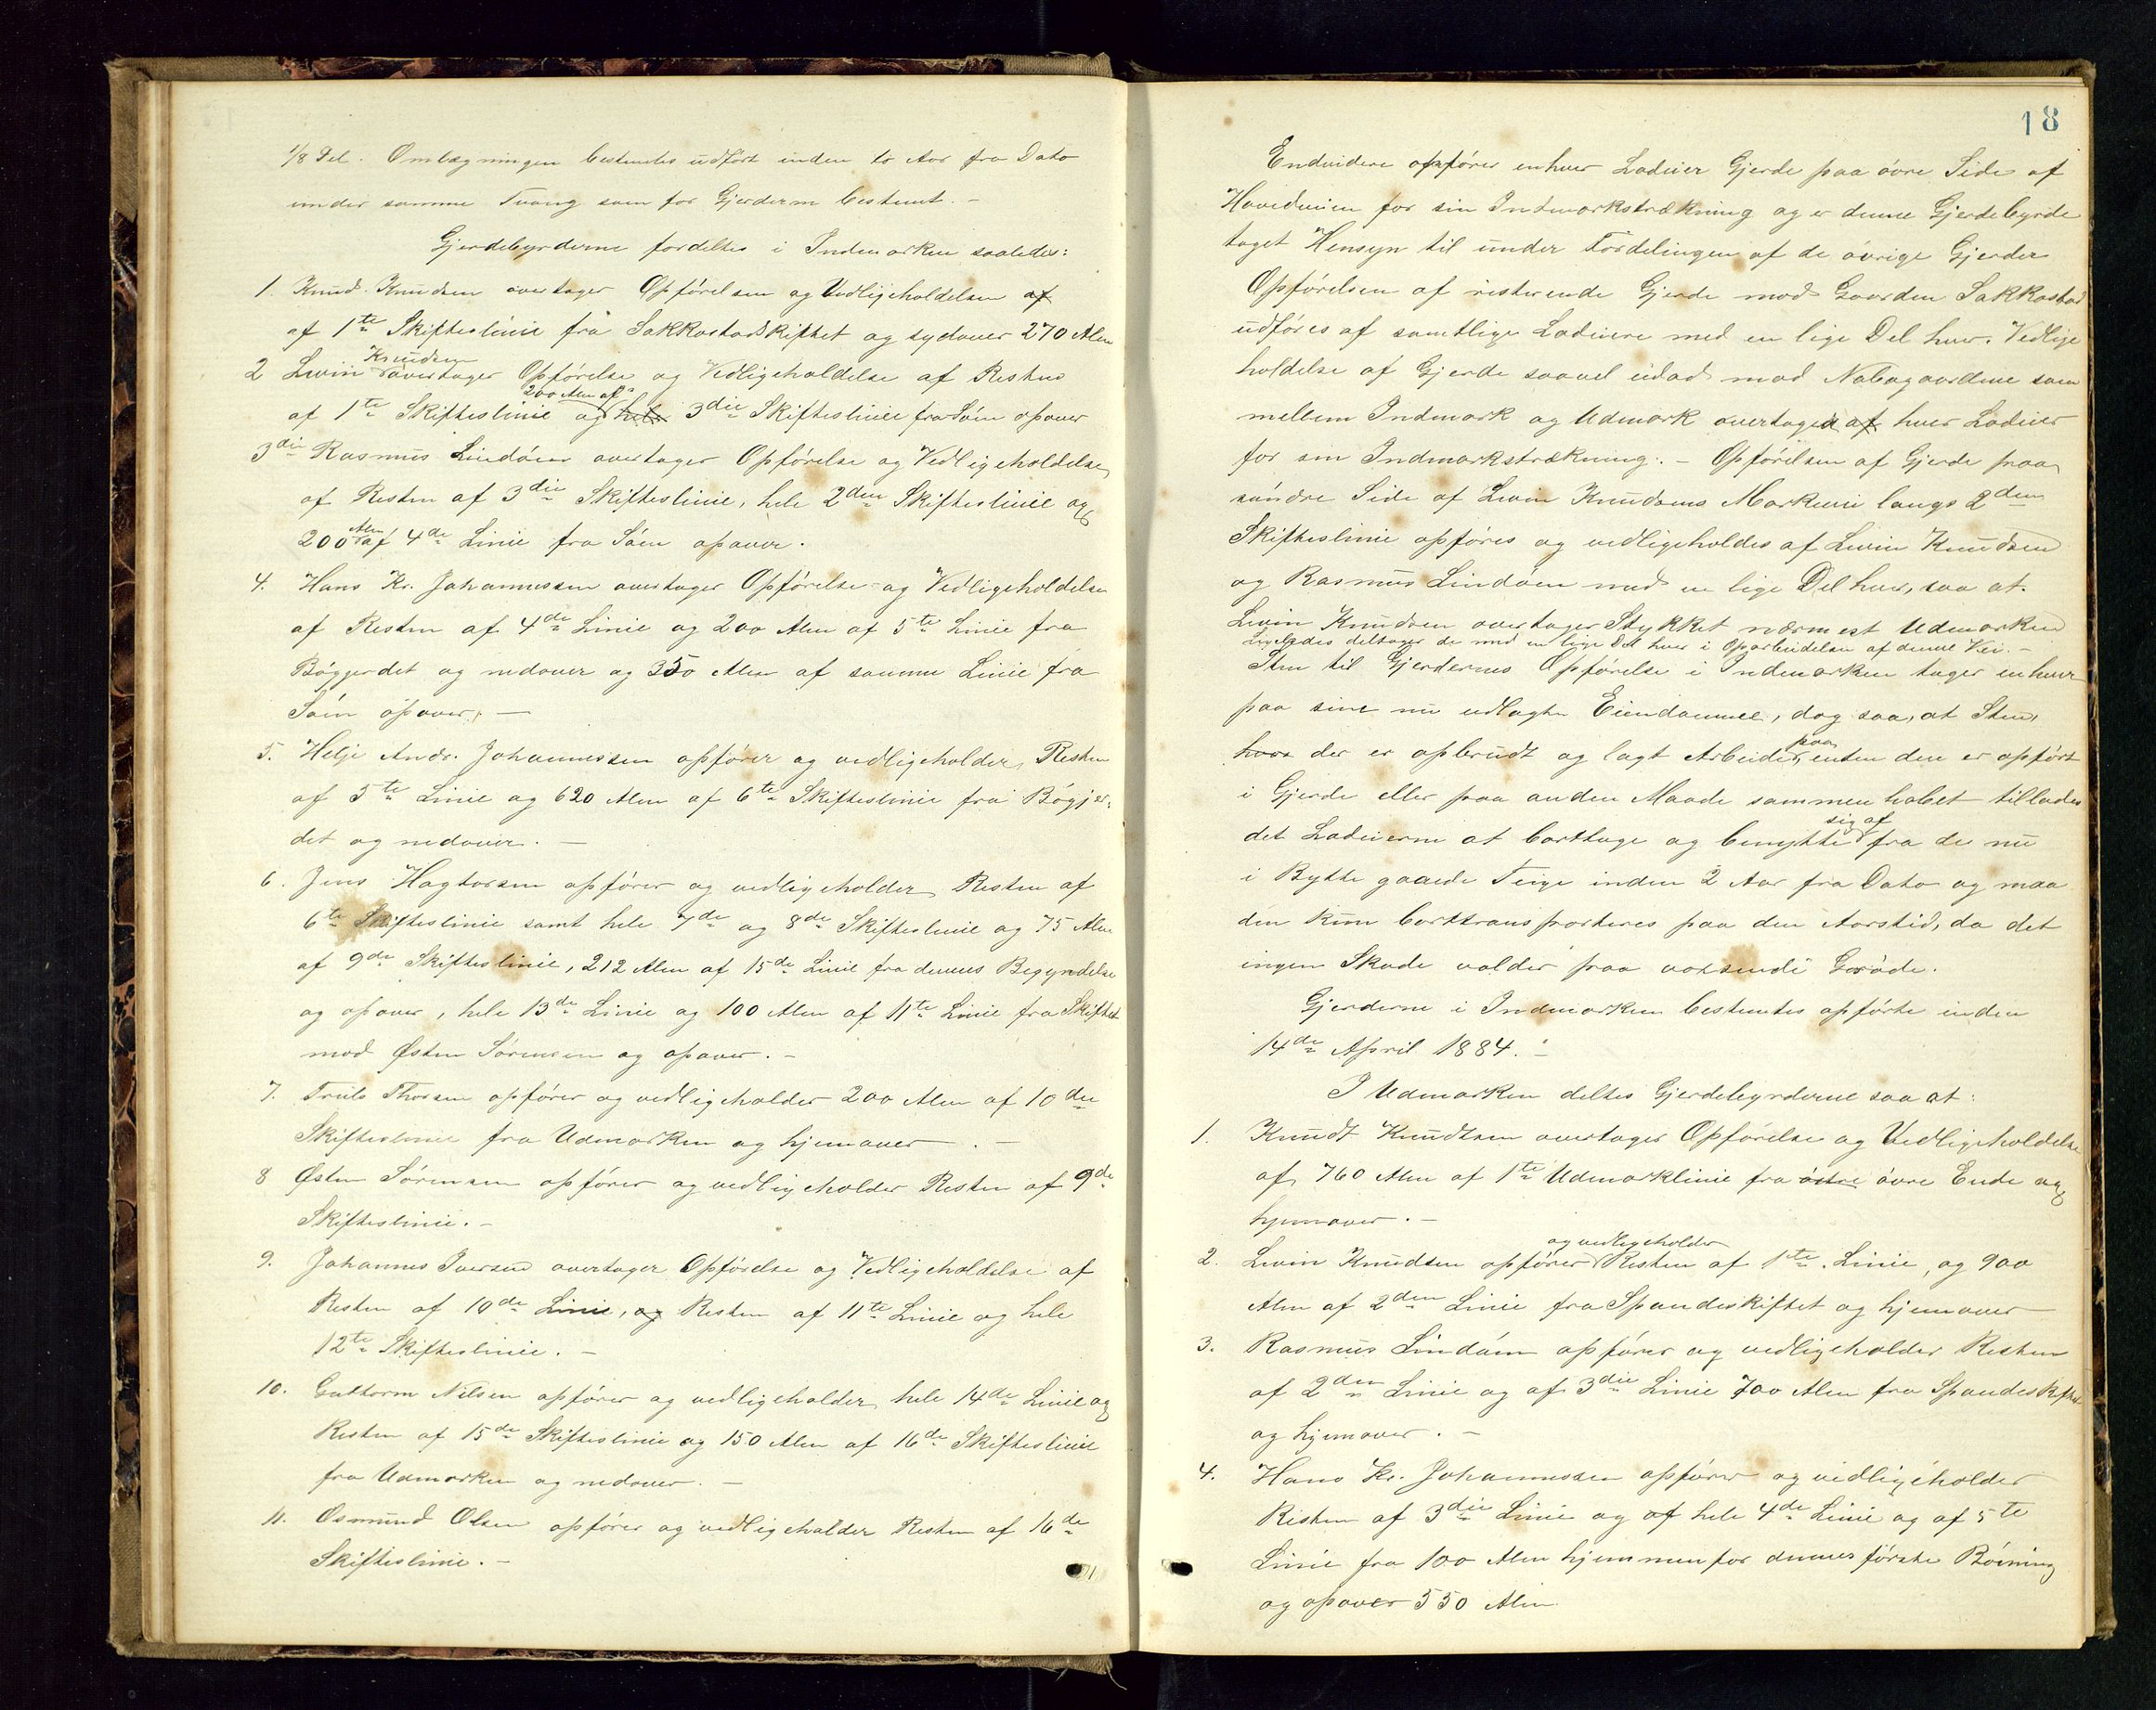 1/8 Del. Omlægningen bestemtes udført inden to Aar fra Dato
under samme Tvang som for Gjerderne bestemt. –
Gjerdebyrderne fordeltes i Indmarken saaledes:
1. Knud Knudsen overtager Opførelsen og Vedligeholdelsen af
af 1te Skifteslinie fra Sakkastadskiftet og sydover 270 Alen
Knudsen
2 Levin overtager Opførelse og Vedligeholdelse af Resten
200 Alen af
af 1te Skifteslinie og hele 3die Skifteslinie fra Søen opover
3die Rasmus Lindøen overtager Opførelse og Vedligeholdelse
af Resten af 3die Skifteslinie, hele 2den Skifteslinie og
200 Alen af 4de Linie fra Søen opover.
4. Hans Kr. Johannessen overtager Opførelse og Vedligeholdelse
af Resten af 4de Linie og 200 Alen af 5te Linie fra
Bøgjerdet og nedover og 350 Alen af samme Linie fra
Søen opover. –
5. Helje Andr. Johannessen opfører og vedligeholder Resten
af 5te Linie og 620 Alen af 6te Skifteslinie fra Bøgjer-
det og nedover. –
6. Jens Hagtorsen opfører og vedligeholder Resten af
6te Skifteslinie samt hele 7de og 8de Skifteslinie og 75 Alen
af 9de Skifteslinie, 212 Alen af 15de Linie fra dennes Begyndelse
og opover, hele 13de Linie og 100 Alen af 11te Linie fra Skiftet
mod Østen Sørensen og opover. –
7. Truls Thorsen opfører og vedligeholder 200 Alen af 10de
Skifteslinie fra Udmarken og hjemover. –
8 Østen Sørensen opfører og vedligeholder Resten af 9de
Skifteslinie. –
9. Johannes Iversen overtager Opførelse og Vedligeholdelse af
Resten af 10de Linie, og Resten af 11te Linie og hele
12te Skifteslinie. –
10. Guttorm Nilsen opfører og vedligeholder hele 14de Linie og
Resten af 15de Skifteslinie og 150 Alen af 16de Skifteslinie
fra Udmarken og nedover. –
11. Osmund Olsen opfører og vedligeholder Resten af 16de
Skifteslinie. –
18
Endvidere opfører enhver Lodeier Gjerde paa øvre Side af
Hovedveien for sin Indmarkstrækning og er denne Gjerdebyrde
taget Hensyn til under Fordelingen af de øvrige Gjerder
Opførelsen af resterende Gjerde mod Gaarden Sakkastad
udføres af samtlige Lodeiere med en lige Del hver. Vedlige
holdelse af Gjerde saavel udad mod Nabogaardene som
mellem Indmark og Udmark overtages af hver Lodeier
for sin Indmarkstrækning. – Opførelsen af Gjerde paa
søndre Side af Levin Knudsens Markevei langs 2den
Skifteslinie opføres og vedligeholdes af Levin Knudsen
og Rasmus Lindøen med en lige Del hver, saa at
Levin Knudsen overtager Stykket nærmest Udmarken
Ligeledes deltager de med en lige Del hver i Oparbeidelsen af denne Vei. –
Sten til Gjerdernes Opførelse i Indmarken tager enhver
paa sine nu udlagte Eiendomme, dog saa, at Sten,
paa
hvor der er opbrudt og lagt Arbeide, enten den er opført
i Gjerde eller paa anden Maade sammenhobet tillades
sig af
det Lodeierne at borttage og benytte fra de nu
i Bytte gaaede Teige inden 2 Aar fra Dato og maa
den kun borttransporteres paa den Aarstid, da det
ingen Skade volder paa voxende Grøde.
Gjerderne i Indmarken bestemtes opførte inden
14de April 1884. –
I Udmarken deltes Gjerdebyrderne saa at:
1. Knudt Knudtsen overtager Opførelse og Vedligeholdelse
af 760 Alen af 1te Udmarklinie fra østre øvre Ende og
hjemover. –
og vedligeholder
2. Levin Knudsen opfører Resten af 1te Linie, og 900
Alen af 2den Linie fra Spandeskiftet og hjemover
3. Rasmus Lindøen opfører og vedligeholder Resten
af 2den Linie og af 3die Linie 700 Alen fra Spandeskiftet
og hjemover. –
4. Hans Kr. Johannessen opfører og vedligeholder
Resten af 3die Linie og af hele 4de Linie og af 5te
Linie fra 100 Alen hjemmenfor dennes første Bøining
og opover 550 Alen